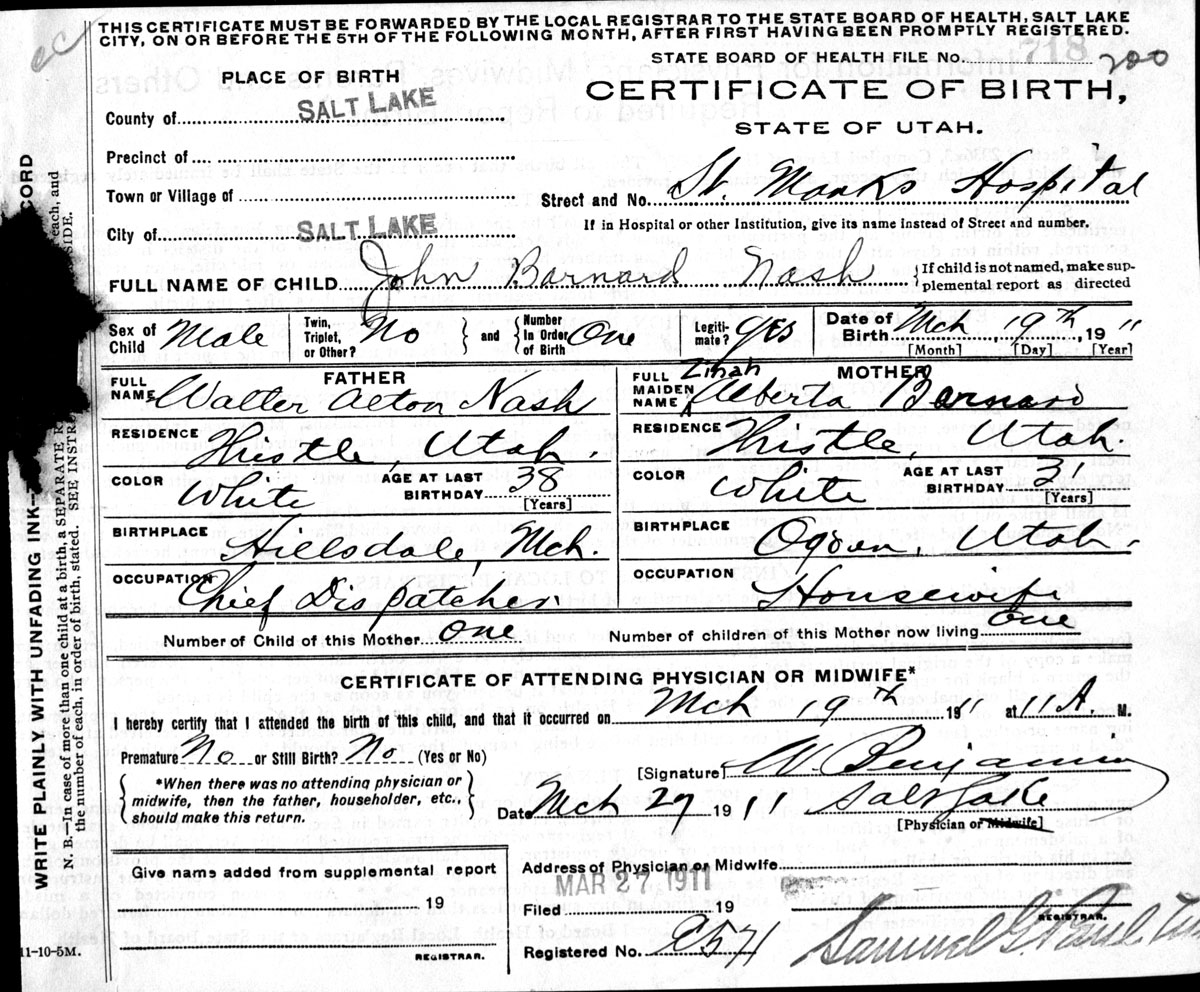 THIS CERTIFICATE MUST BE FORWARDED BY THE LOCAL REGISTRAR TO THE STATE BOARD OF HEALTH, SALT LAKE
CITY, ON OR BEFORE THE 5TH OF THE FOLLOWING MONTH, AFTER FIRST HAVING BEEN PROMPTLY REGISTERED.
STATE BOARD OF HEALTH FILE NO. 718 200
PLACE OF BIRTH
CERTIFICATE OF BIRTH,
STATE OF UTAH.
County of SALT LAKE
Precinct of
Town or Village of
Street and No. St. Marks Hospital
City of SALT LAKE
If in Hospital or other Institution, give its name instead of Street and number.
FULL NAME OF CHILD John Barnard Nash
If child is not named, make sup-
plemental report as directed
Sex of Child Male
Twin, Triplet, or Other? No and Number In Order of Birth One
Legiti-mate? yes
Date of Birth Mch 19th, 1911
[Month] [Day] [Year]
FATHER
FULL NAME Walter Acton Nash
RESIDENCE Thistle, Utah.
COLOR White AGE AT LAST BIRTHDAY 38 [Years]
BIRTHPLACE Hillsdale, Mch.
OCCUPATION Chief Dispatcher.
MOTHER
FULL MAIDEN NAME Zinah Alberta Barnard
RESIDENCE Thistle, Utah.
COLOR White AGE AT LAST BIRTHDAY 31 [Years]
BIRTHPLACE Ogden, Utah.
OCCUPATION Housewife
Number of Child of this Mother one Number of children of this Mother now living one
CERTIFICATE OF ATTENDING PHYSICIAN OR MIDWIFE*
I hereby certify that I attended the birth of this child, and that it occurred on Mch 19th 1911 at 11 A. M.
Premature No or Still Birth? No (Yes or No)
*When there was no attending physician or
midwife, then the father, householder, etc.,
should make this return.
[Signature] W. Benjamin
Date Mch 27 1911 Salt Lake
[Physician or Midwife]
Give name added from supplemental report
19
REGISTRAR.
Address of Physician or Midwife
Filed MAR 27 1911 19
REGISTRAR.
Registered No. 571
Samuel G.
11-10-5M.
WRITE PLAINLY WITH UNFADING INK
CORD
N. B.—In case of more than one child at a birth, a SEPARATE R each, and
the number of each, in order of birth, stated. SEE INSTRU SIDE.